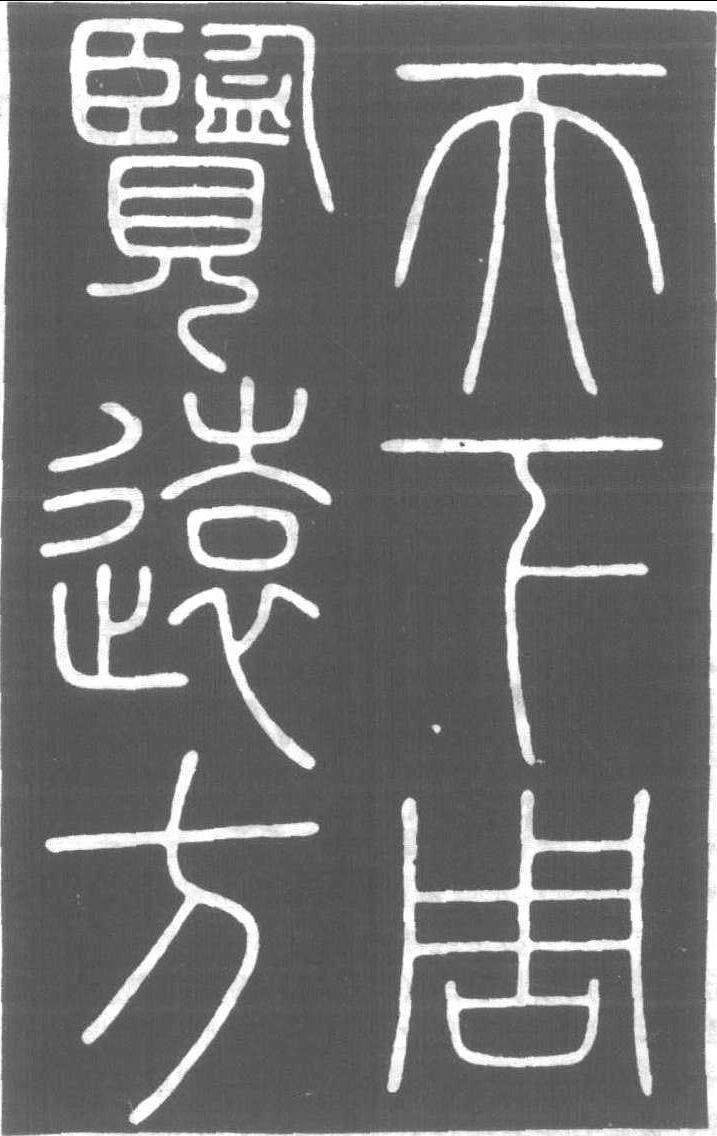 天下周
覽遠方